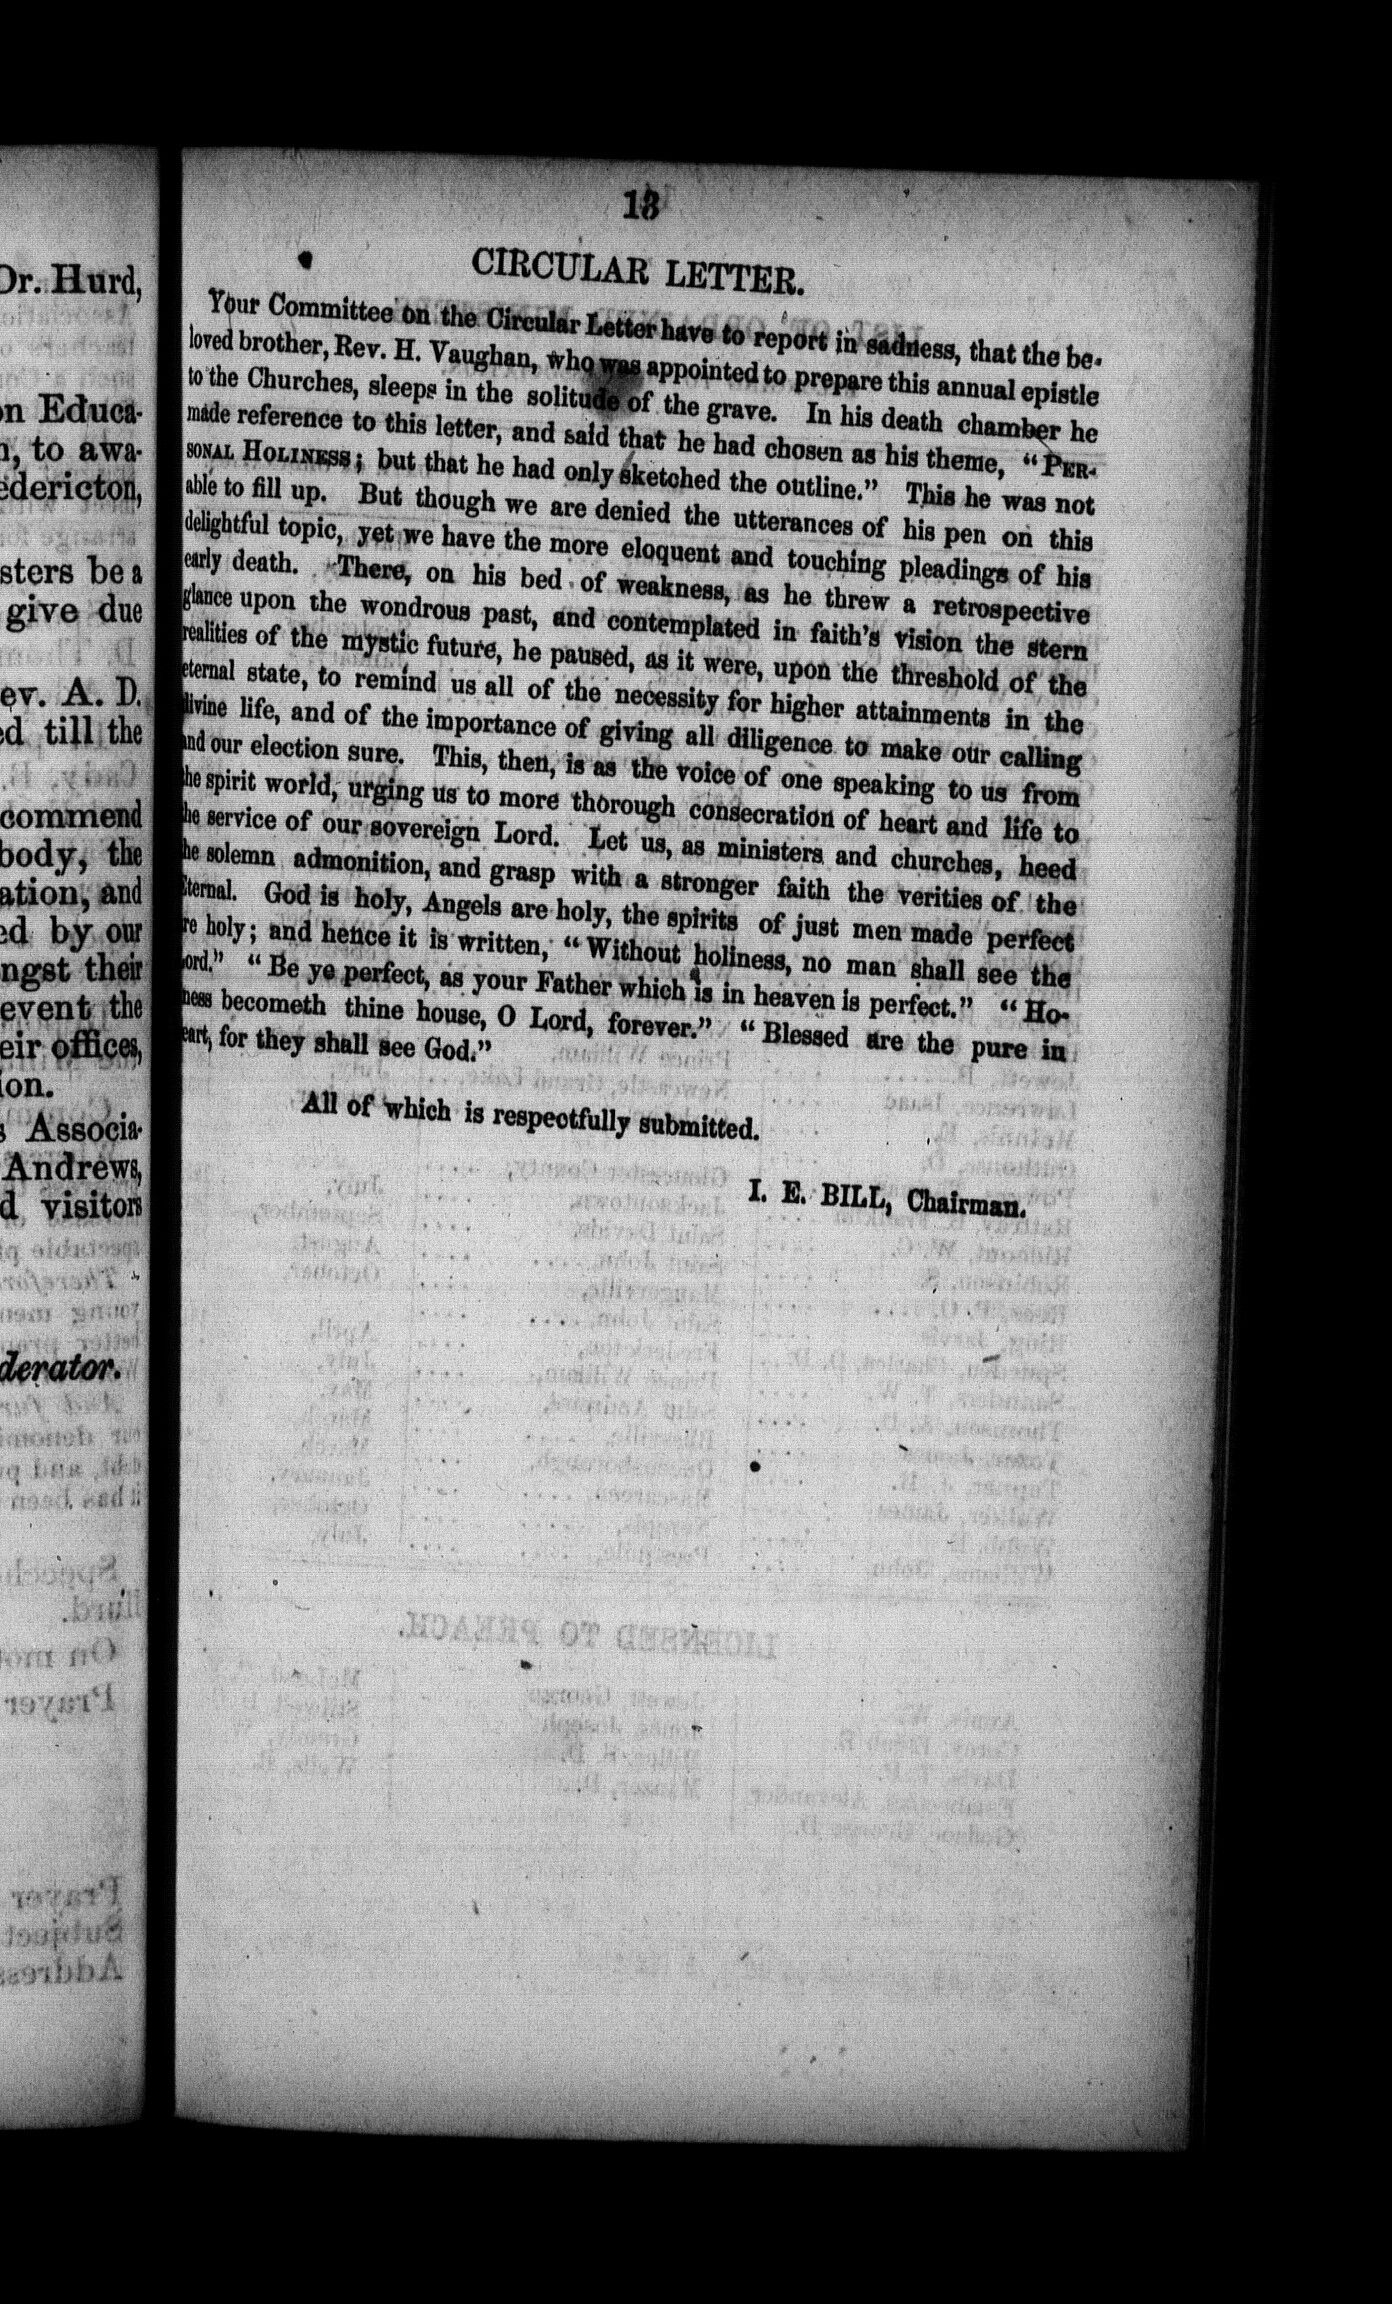 Dr. Hurd,
on Educa-
, to awa-
edericton,
sters be a
give due
ev. A. D.
ed till the
commend
body, the
ation, and
ed by our
ngst their
event the
eir offices,
ion.
s Associa-
Andrews,
d visitors
derator.
13
CIRCULAR LETTER.
Your Committee on the Circular Letter have to report in sadness, that the be-
loved brother, Rev. H. Vaughan, who was appointed to prepare this annual epistle
to the Churches, sleeps in the solitude of the grave. In his death chamber he
made reference to this letter, and said that he had chosen as his theme, “PER-
SONAL HOLINESS; but that he had only sketched the outline.” This he was not
able to fill up. But though we are denied the utterances of his pen on this
delightful topic, yet we have the more eloquent and touching pleadings of his
early death. There, on his bed of weakness, as he threw a retrospective
glance upon the wondrous past, and contemplated in faith's vision the stern
realities of the mystic future, he paused, as it were, upon the threshold of the
eternal state, to remind us all of the necessity for higher attainments in the
divine life, and of the importance of giving all diligence to make our calling
and our election sure. This, then, is as the voice of one speaking to us from
the spirit world, urging us to more thorough consecration of heart and life to
he service of our sovereign Lord. Let us, as ministers and churches, heed
he solemn admonition, and grasp with a stronger faith the verities of the
Eternal. God is holy, Angels are holy, the spirits of just men made perfect
re holy; and hence it is written, “Without holiness, no man shall see the
ord.” “Be ye perfect, as your Father which is in heaven is perfect.” “Ho-
ness becometh thine house, O Lord, forever.” “Blessed are the pure in
eart, for they shall see God.”
All of which is respectfully submitted.
I. E. BILL, Chairman.